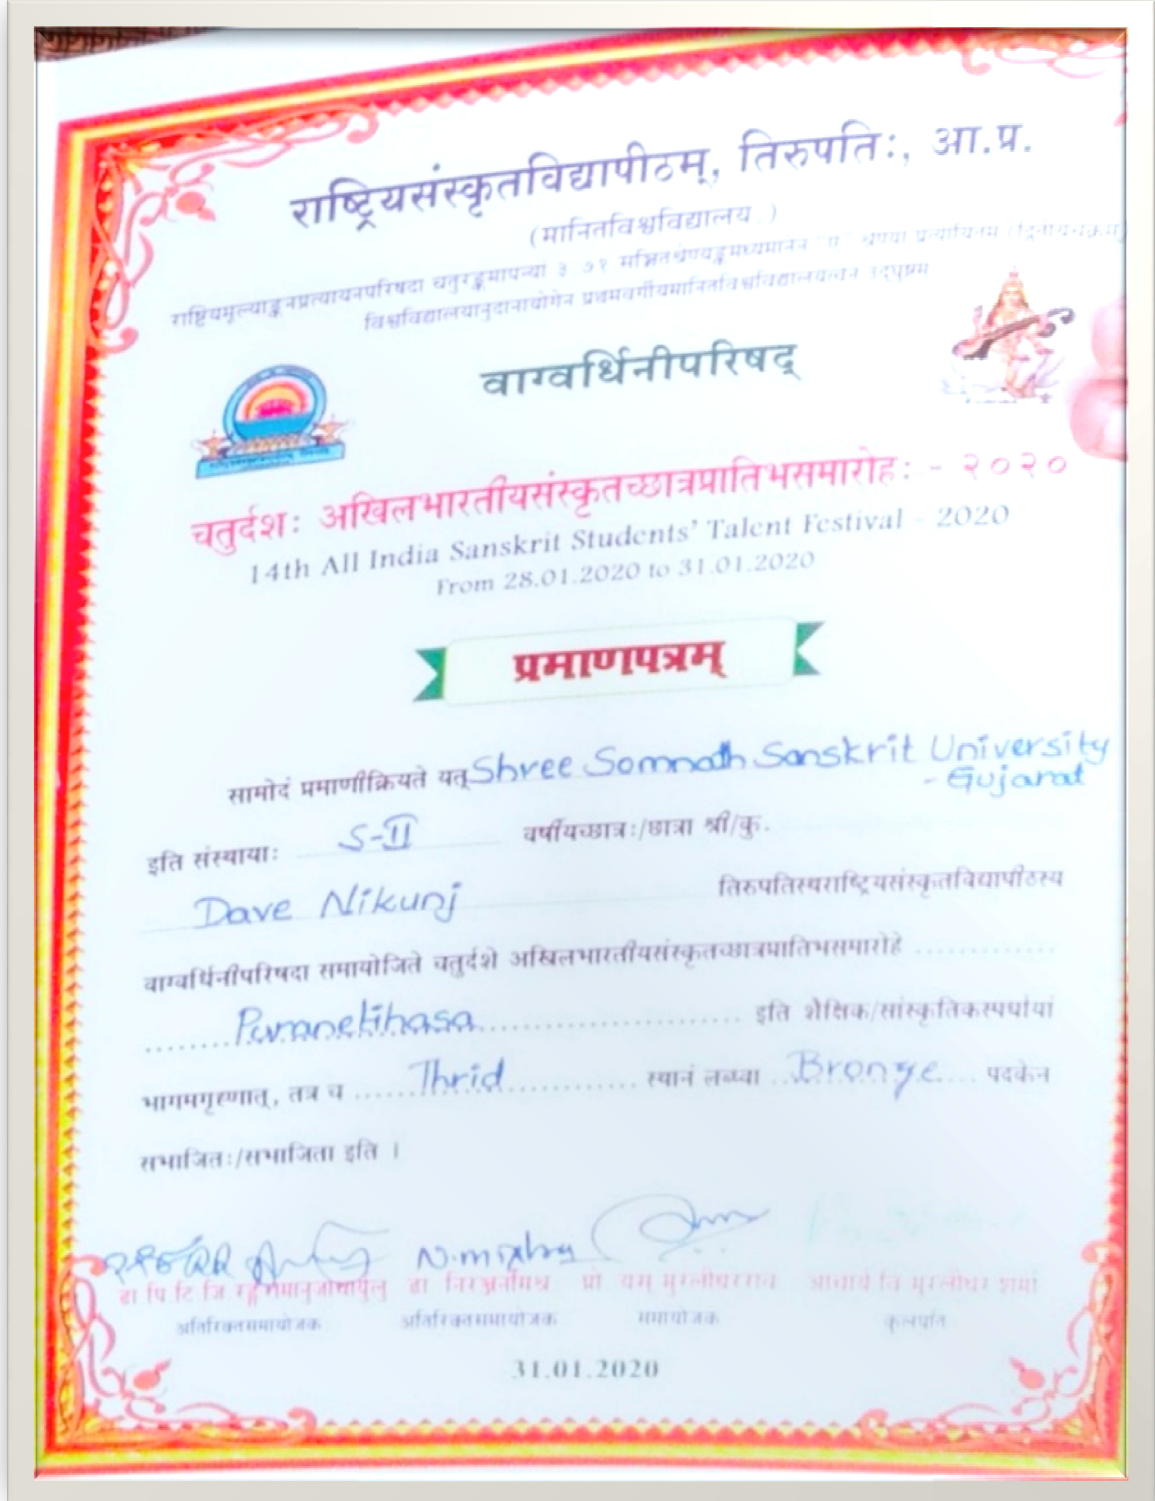 राष्ट्रियसंस्कृतविद्यापीठम्, तिरुपतिः, आ.प्र.
(मानितविश्वविद्यालयः)
राष्ट्रियमूल्याङ्कनप्रत्यायनपरिषदा चतुरङ्कमापन्यां ३.७१
विश्वविद्यालयानुदानायोगेन प्रथमवर्गीयमानितविश्वविद्यालयत्वेन उद्घुष्टम्
वाग्वर्धिनीपरिषद्
चतुर्दशः अखिलभारतीयसंस्कृतच्छात्रप्रातिभसमारोहः - २०२०
14th All India Sanskrit Students' Talent Festival - 2020
From 28.01.2020 to 31.01.2020
प्रमाणपत्रम्
सामोदं प्रमाणीक्रियते यत् Shree Somnath Sanskrit University
- Gujarat
इति संस्थायाः S-II वर्षीयच्छात्रः/छात्रा श्री/कु.
Dave Nikunj तिरुपतिस्थराष्ट्रियसंस्कृतविद्यापीठस्य
वाग्वर्धिनीपरिषदा समायोजिते चतुर्दशे अखिलभारतीयसंस्कृतच्छात्रप्रातिभसमारोहे ............
........Puranetihasa........................ इति शैक्षिक/सांस्कृतिकस्पर्धायां
भागमगृह्णात्, तत्र च ......Thrid............ स्थानं लब्ध्वा ...Bronze.... पदकेन
सभाजितः/सभाजिता इति ।
डा पि.टि.जि.रङ्गरामानुजाचार्युलु डा निरञ्जनमिश्रः प्रो. यस् मुरलीधरराव आचार्य वि मुरलीधर शर्मा
अतिरिक्तसमायोजकः अतिरिक्तसमायोजकः समायोजकः कुलपतिः
31.01.2020